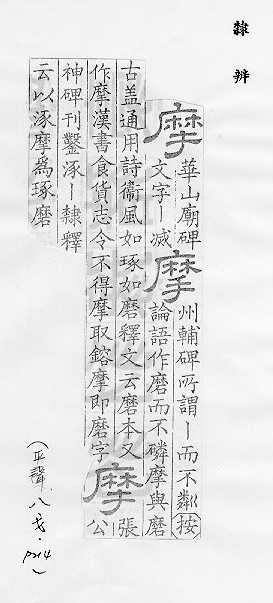 隸辨
摩
華山廟碑
文字丨滅
摩
州輔碑所謂丨而不粼按
論語作磨而不磷摩與磨
古盖通用詩衞風如琢如磨釋文云磨本又
作摩漢書食貨志令不得摩取鎔摩即磨字
摩
張
公
神碑刊鑿涿丨隸釋
云以涿摩爲琢磨
(平聲.八戈.p214)